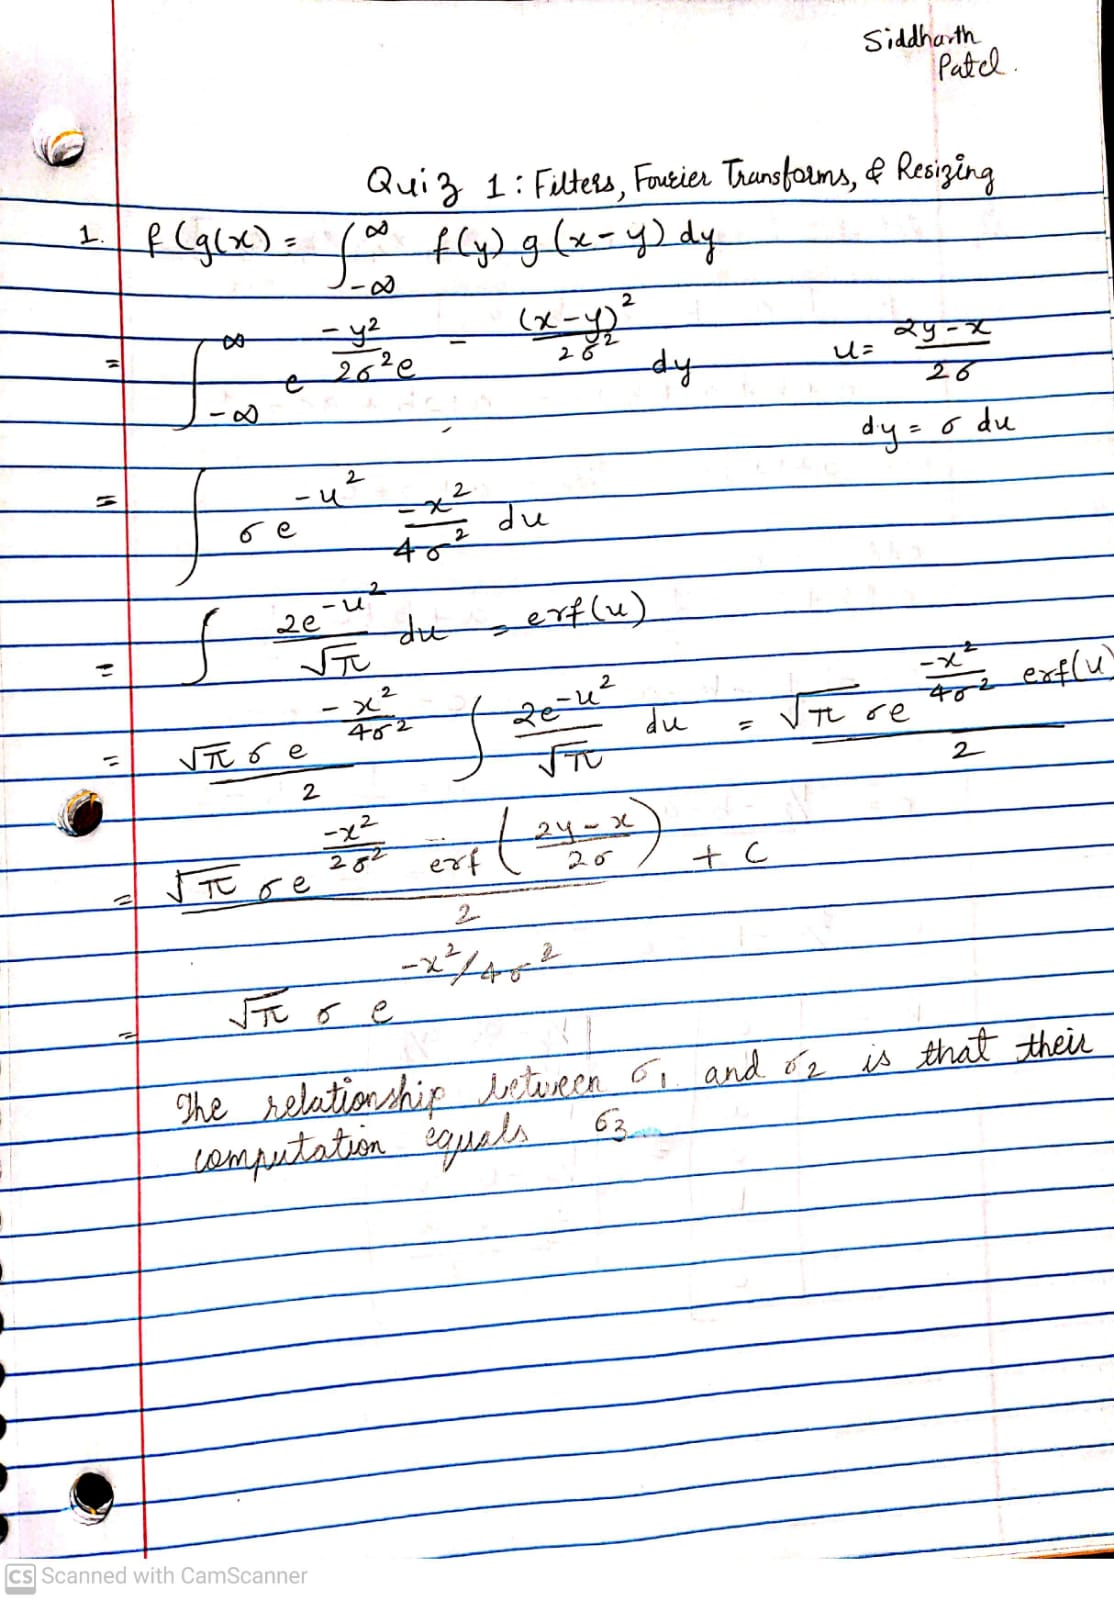 Siddharth
Patel.
Quiz 1: Filters, Fourier Transforms, & Resizing
1. f(g(x) = ∫_{-∞}^{∞} f(y) g(x-y) dy
= ∫_{-∞}^{∞} e^{-y²/2σ²} e^{-(x-y)²/2σ²} dy    u = (2y-x)/2σ
dy = σ du
= ∫ σ e^{-u² -x²/4σ²} du
= ∫ 2e^{-u²}/√π du = erf(u)
= √π σ e^{-x²/4σ²}/2 ∫ 2e^{-u²}/√π du = √π σe^{-x²/4σ²} erf(u)/2
= √π σe^{-x²/2σ²} erf((2y-x)/2σ)/2 + C
= √π σ e^{-x²/4σ²}
The relationship between σ₁ and σ₂ is that their
computation equals σ₃
CS Scanned with CamScanner